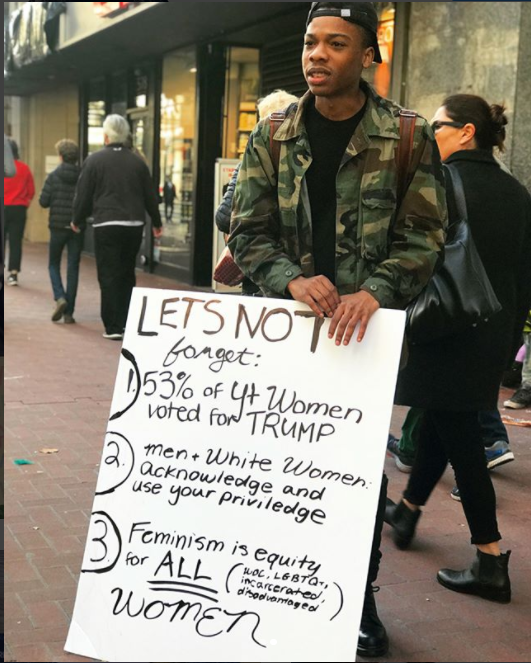 LETS NOT
forget:
1. 53% of Yt Women
voted for TRUMP
2. men + White Women:
acknowledge and
use your priviledge
3. Feminism is equity
for ALL
(WOC, LGBTQ+,
incarcerated,
disadvantaged)
WOMEN